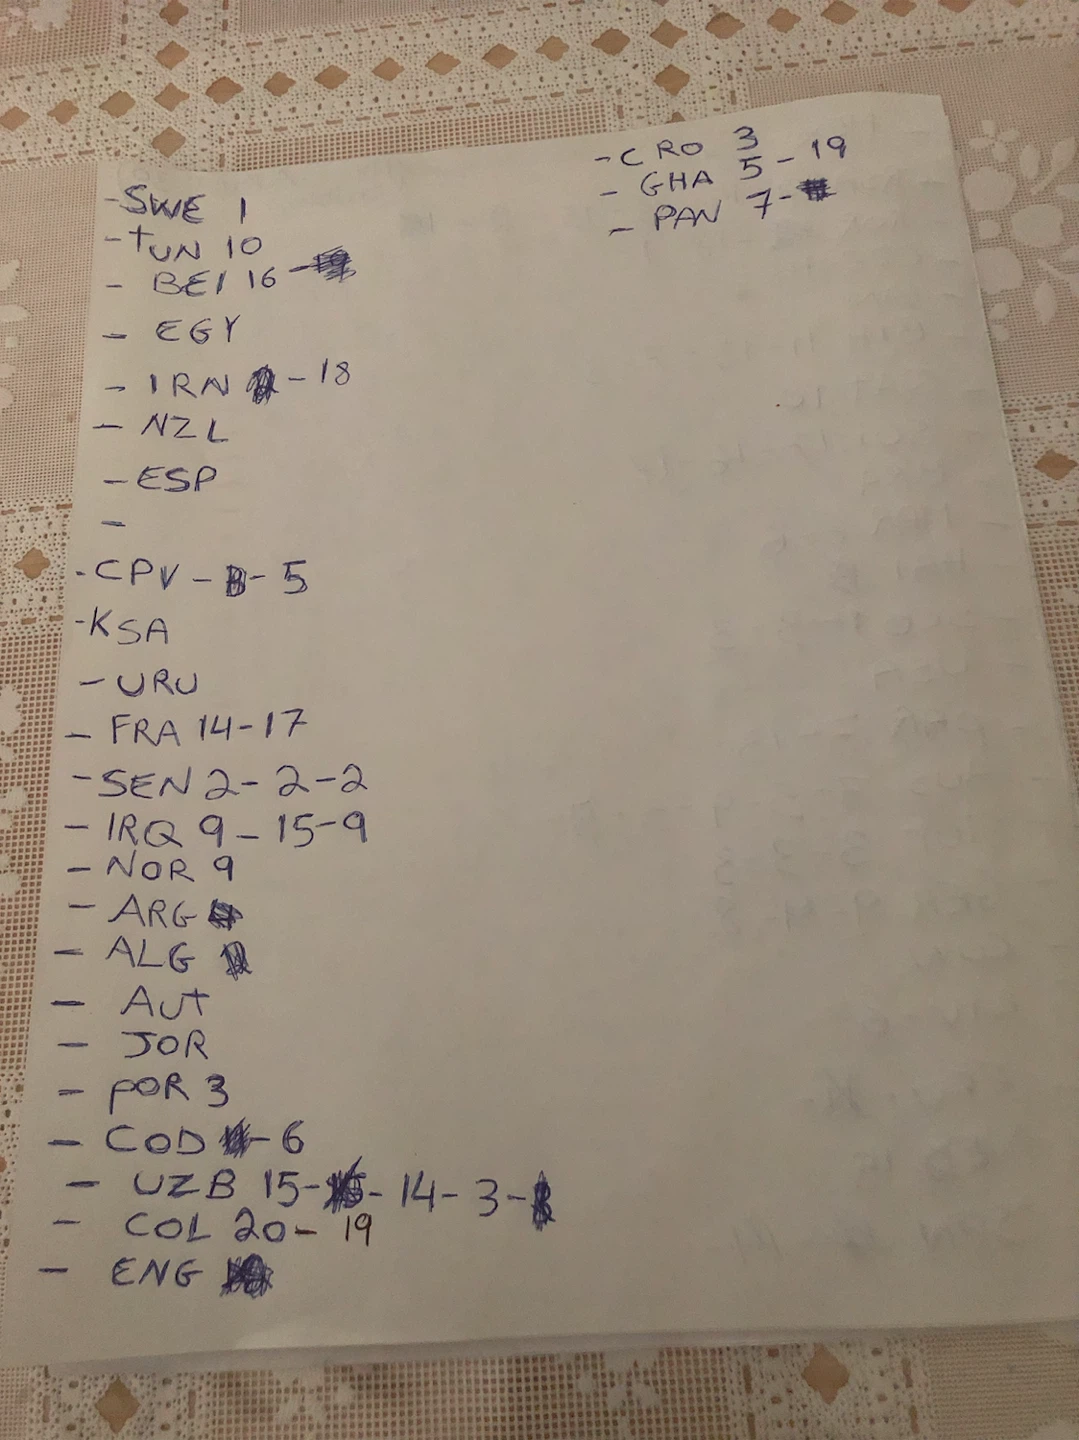 -SWE 1
-TUN 10
- BEI 16 -
- EGY
- IRN - 18
- NZL
- ESP
-
- CPV - - 5
- KSA
- URU
- FRA 14-17
- SEN 2-2-2
- IRQ 9-15-9
- NOR 9
- ARG
- ALG
- AUT
- JOR
- POR 3
- COD - 6
- UZB 15- - 14-3-
- COL 20-19
- ENG
- CRO 3
- GHA 5-19
- PAN 7-